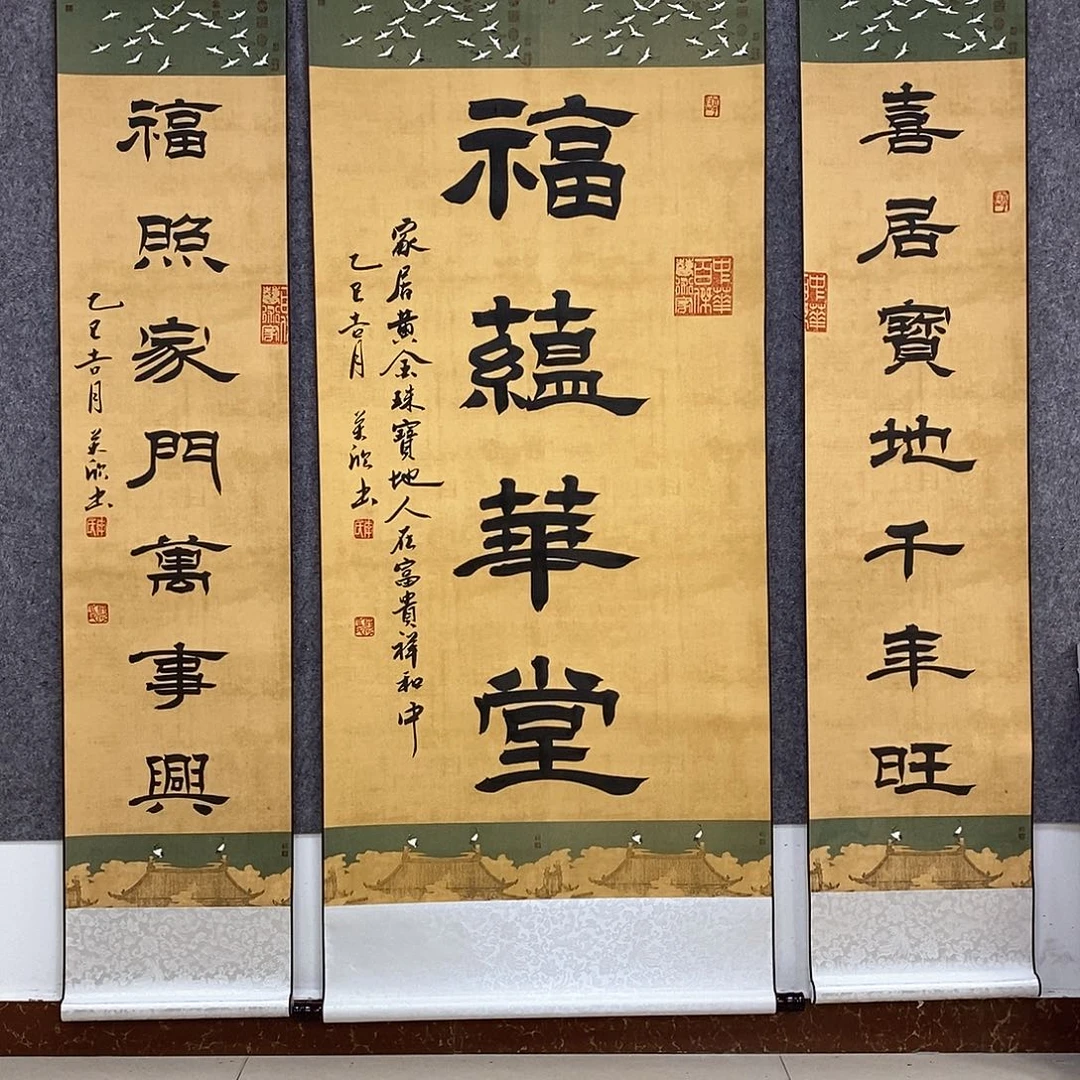 喜居寶地千年旺
福蘊華堂
家居黄金珠寶地人在富貴祥和中
乙巳吉月
福照家門萬事興
乙巳吉月
中華百傑